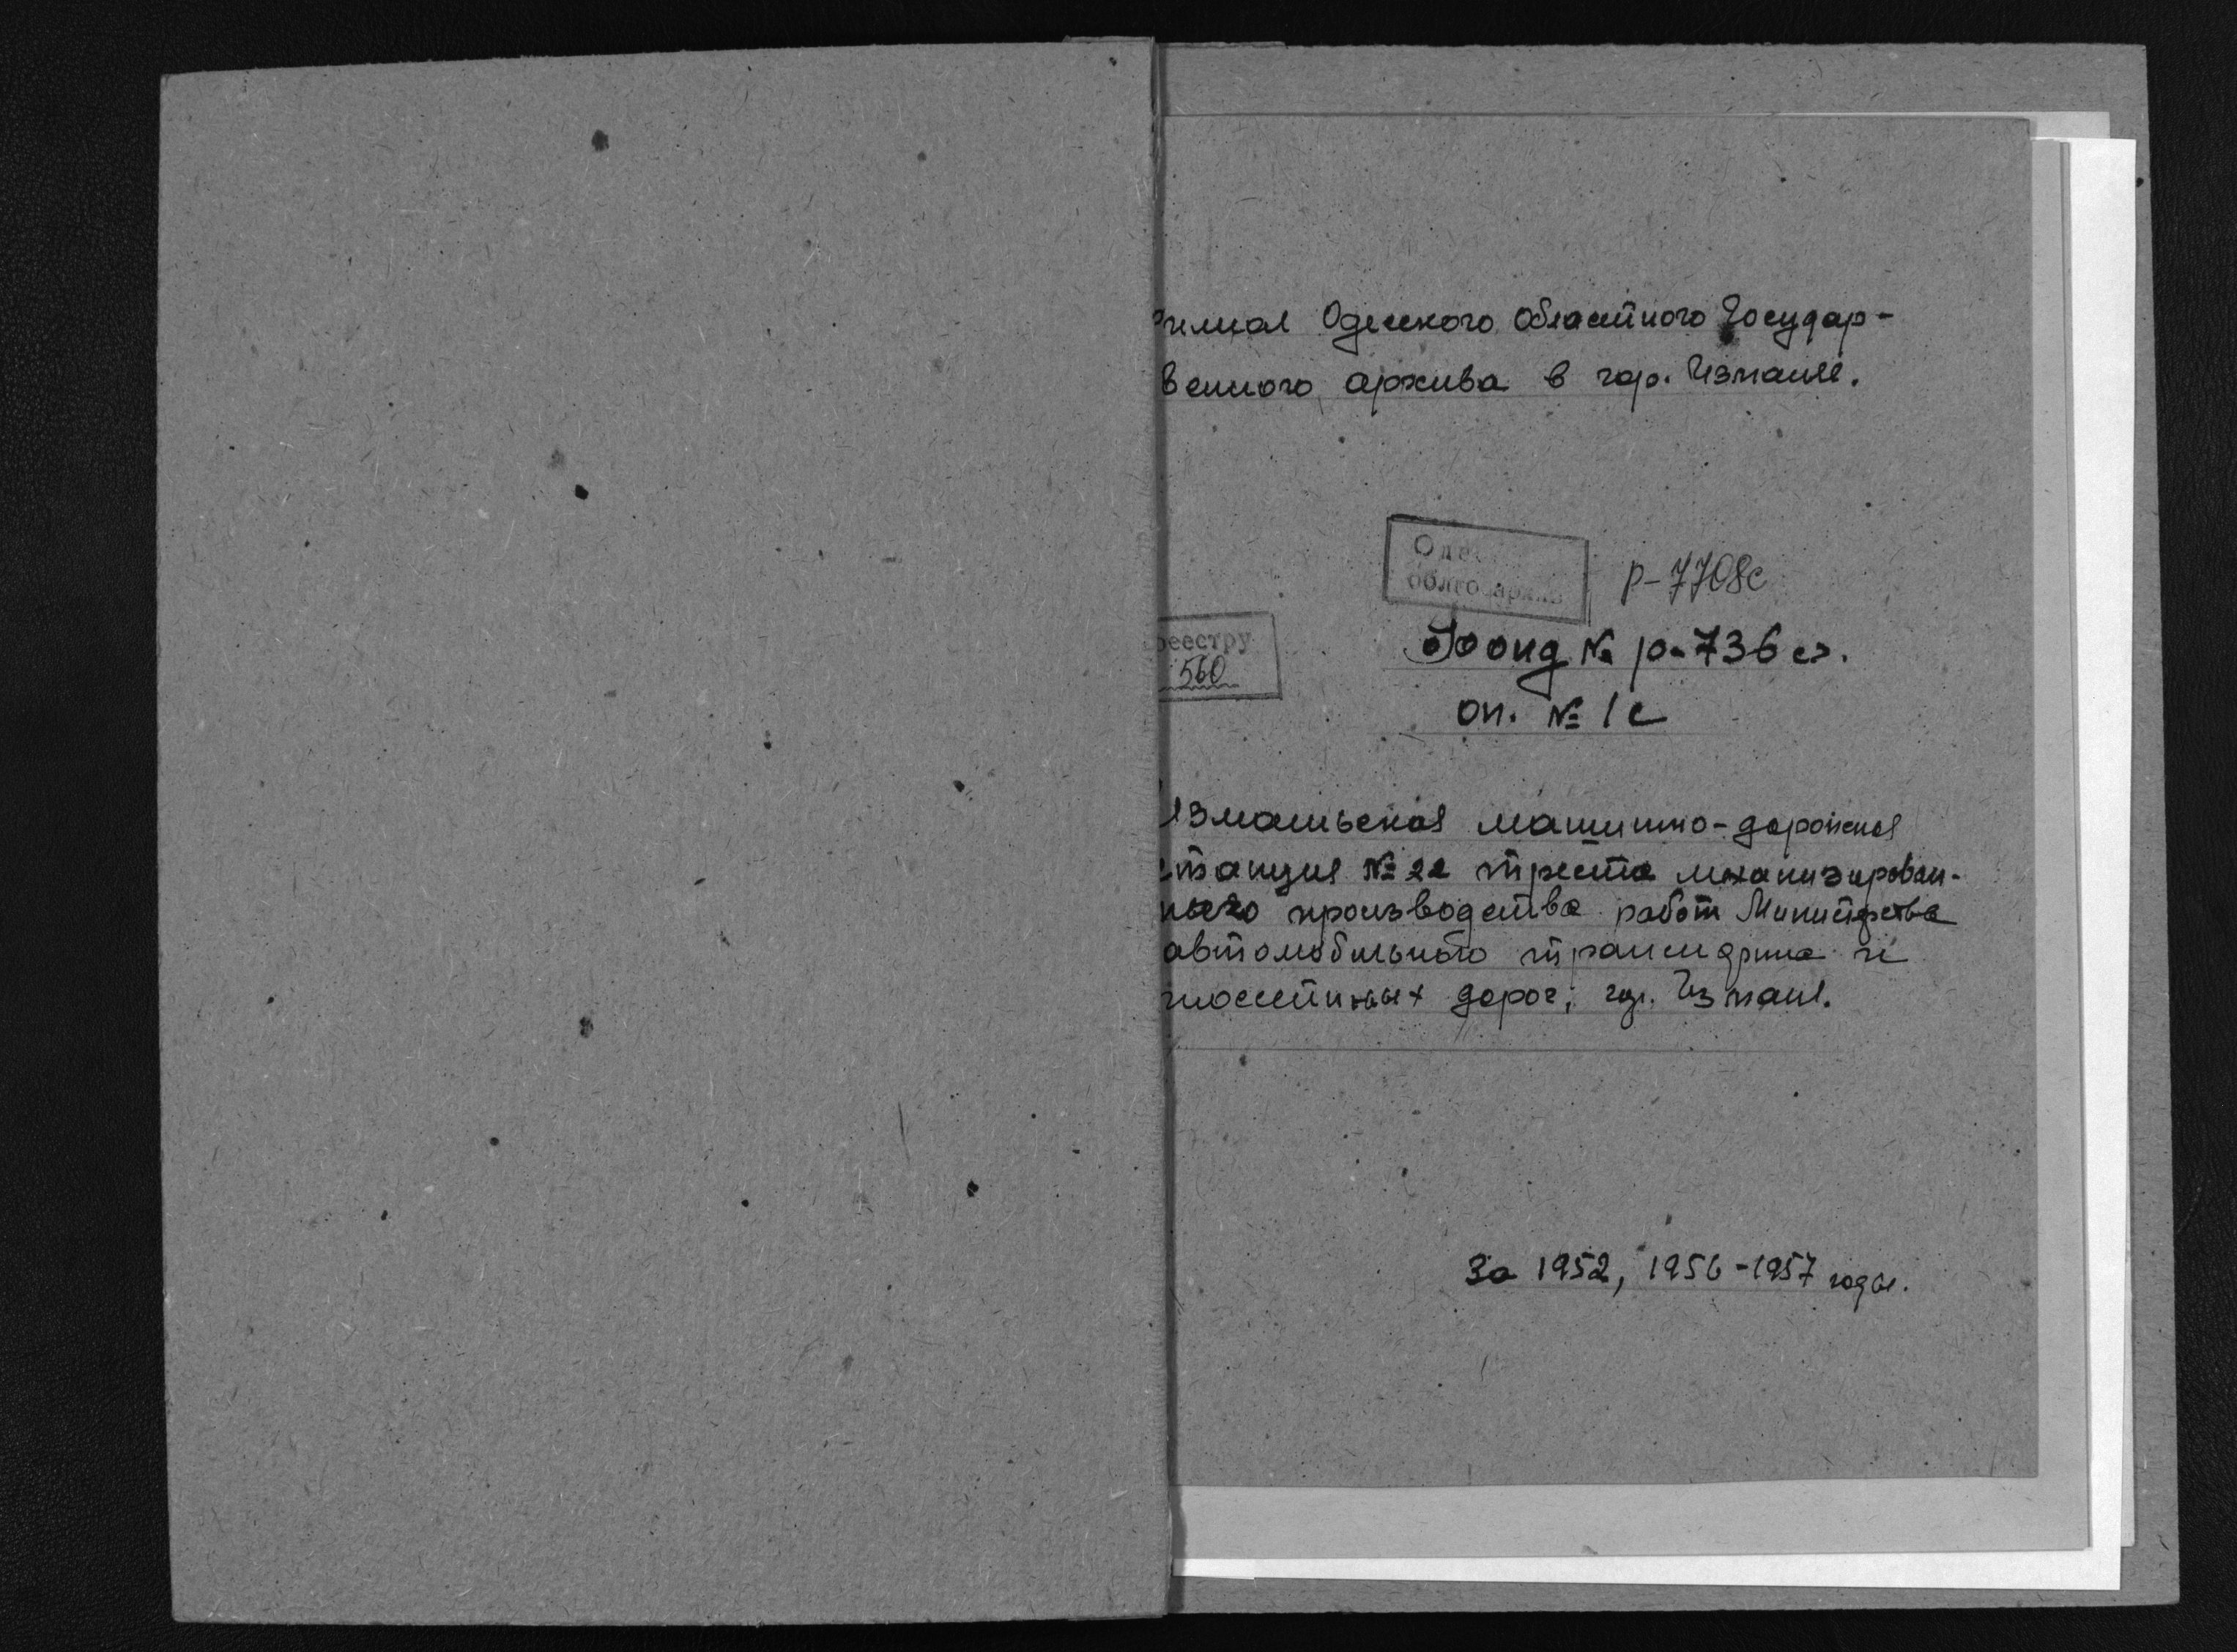 филиал Одесского Областного Государ-
венного архива в гор. Измаиле.
Одес.
облгосархив
р-7708с
реестру
560
Фонд № р-736 с.
оп. № 1с
Измаильская машинно-дорожная
станция № 22 треста механизирован-
ного производства работ Министерства
автомобильного транспорта и
шоссейных дорог, гор. Измаил.
За 1952, 1956-1957 годы.